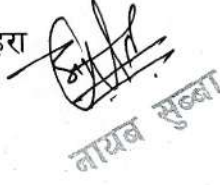 हरा
नायब सुब्बा